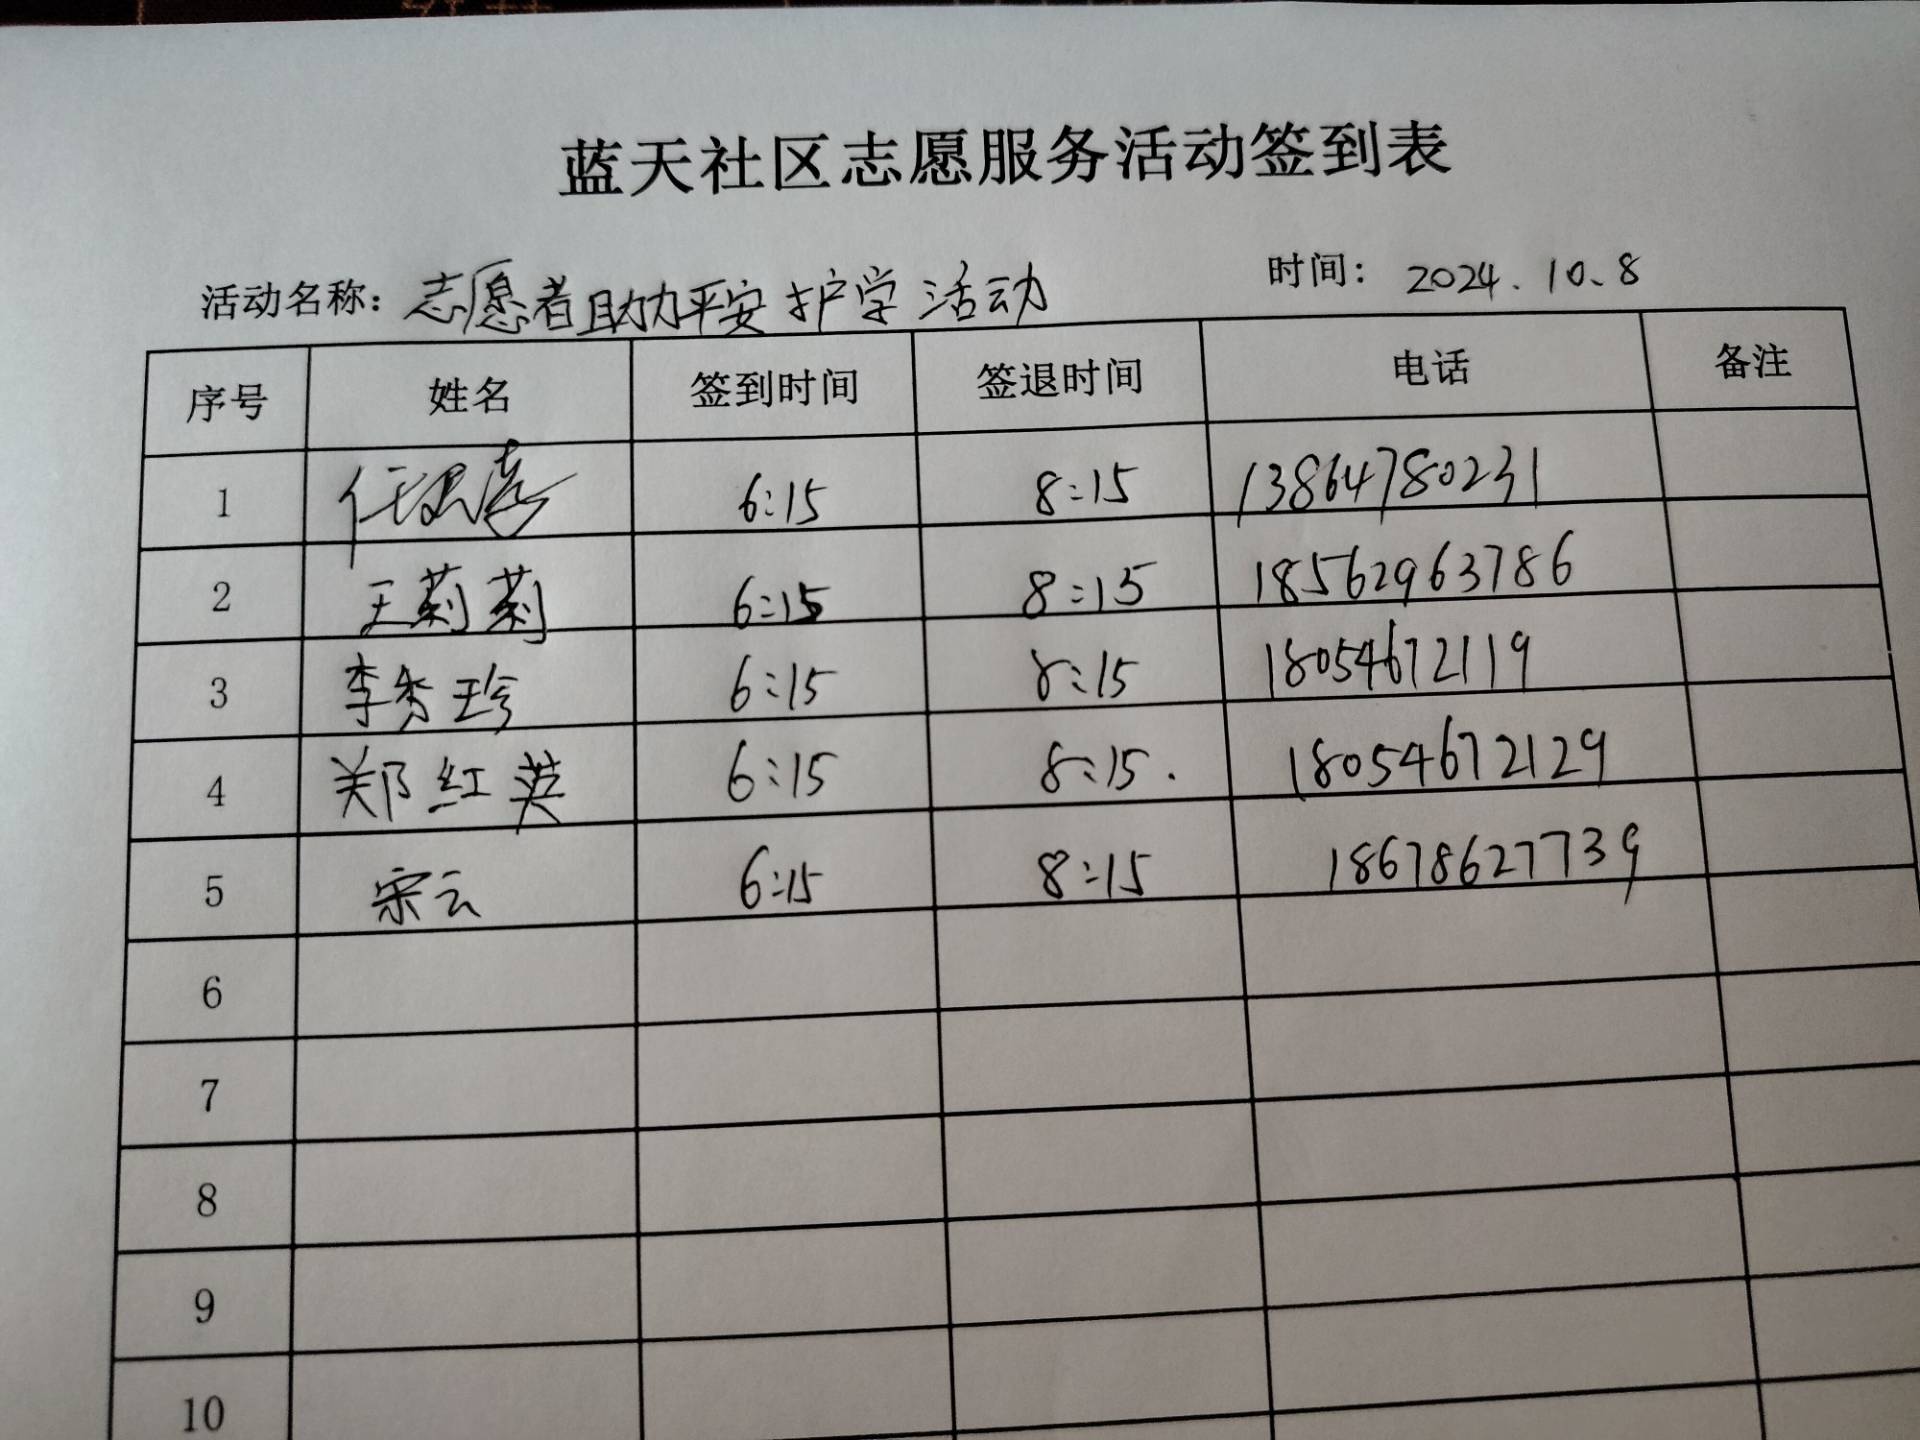 蓝天社区志愿服务活动签到表
活动名称：志愿者助力平安护学活动 时间：2024.10.8
序号 姓名 签到时间 签退时间 电话 备注
1 任 6:15 8:15 13864780231
2 王莉莉 6:15 8:15 18562963786
3 李秀珍 6:15 8:15 18054672119
4 郑红英 6:15 8:15. 18054672129
5 宋云 6:15 8:15 18678627739
6
7
8
9
10